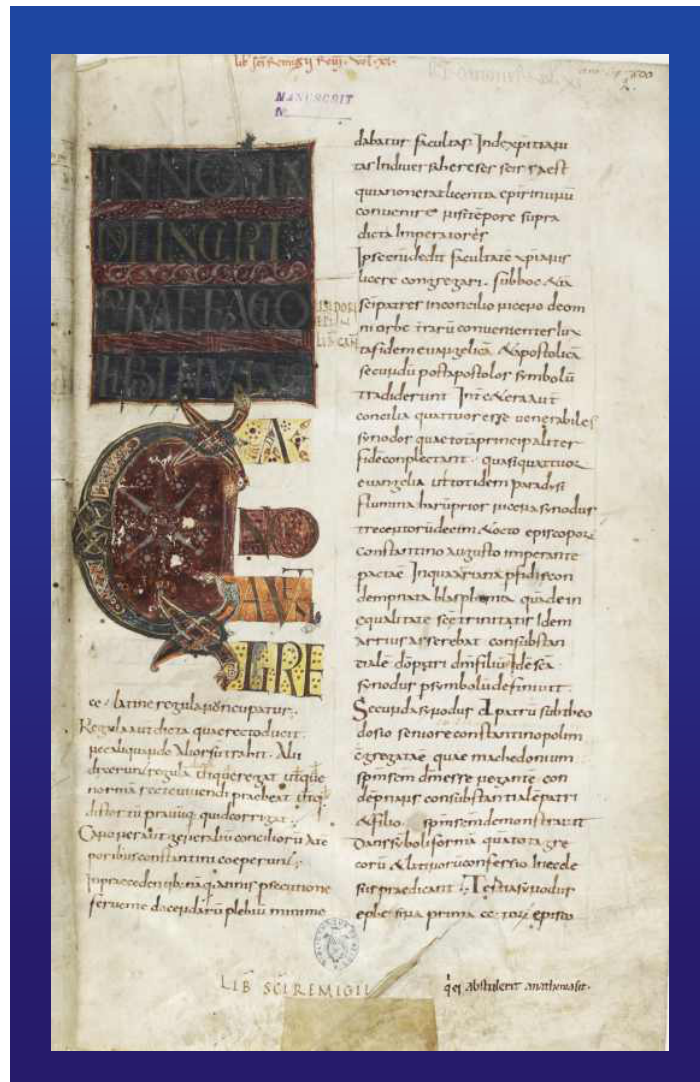 lib sci Remigii Rem vol. xi.
MANUSCRIT
N
IN NOMINE
DEI INCIPIT
PRAEFATIO
HUIUS LIB
CANON
AUTEM
GRE
ce. latine regula nuncupatur.
Regula aut dicta quae recto ducit.
nec aliquando aliorsu trahit. Alii
dixerunt regula vel que regat vel que
norma recte vivendi praebeat vel qd
distortu pravuq; quid corrigat.
Canones aut generaliu concilioru a te
poribus constantini coeperunt;
Inpraecedentib; naq. annis psecutione
fervente docendaru plebiu minime
dabatur facultas. Inde xpitiani
tas Indiversas hereses scissa est
quia non erat licentia epis inunu
convenire nisi tepore supra
dicti Imperatoris
Ipse eni dedit facultate xpianis
libere congregari. sub hoc & sci
patres in concilio niceno de om
ni orbe terraru convenientes Iux
ta fidem evangelica & apostolica
secundu post apostolos symbolu
tradiderunt Inter cetera aut
concilia quattuor esse venerabiles
synodos quae tota principaliter
fide complectant. quasi quattuor
evangelia vel totidem paradisi
flumina haru prior nicena synodus
trecentoru decim & octo episcoporu
constantino augusto imperante
pacta e In qua arriana pfidie con
dempnata blasphemia qua de in
equalitate sce trinitatis Idem
arrius asserebat consubstan
tiale do patri dm filiu Idem sca
synodus p symbolu definivit.
Secunda synodus cl patru sub theo
dosio seniore constantinopolim
congregata e quae machedonium
spm scm dm esse negante con
dempnans consubstantiale patri
& filio spm scm demonstravit
dans symboli forma qua tota gre
coru & latinoru confessio In eccle
siis praedicant. Tertia synodus
ephesina prima cc.toru episco
LIB SCI REMIGII
qi abstulerit anathema sit.